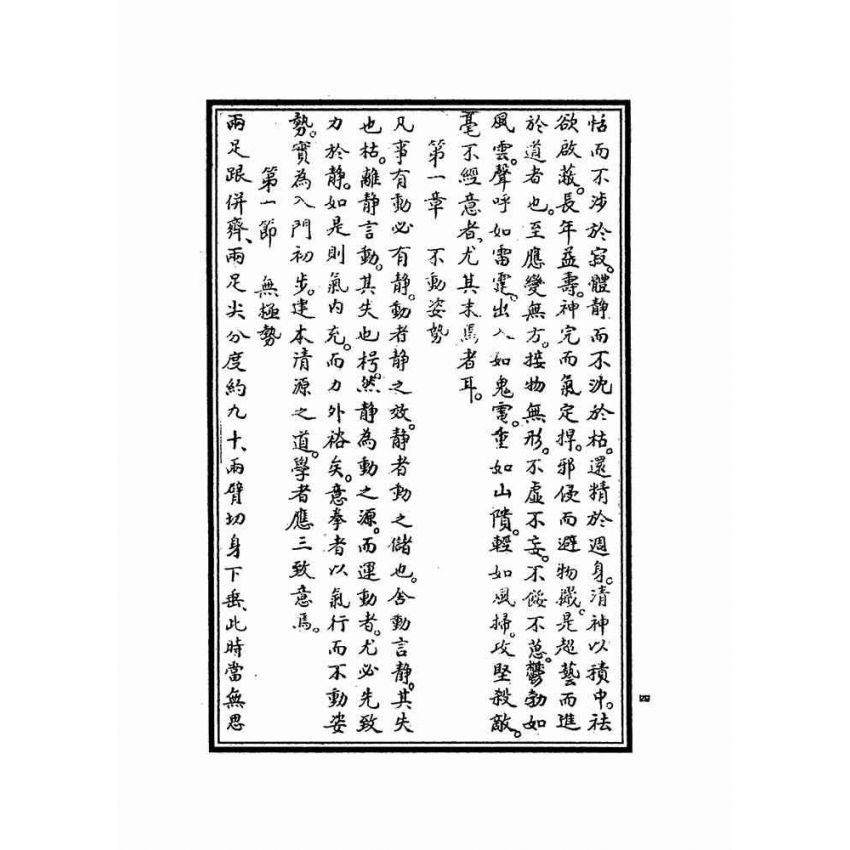 恬而不涉於寂。體静而不沈於枯。還精於週身。清神以積中。祛
欲啟蔽。長年益壽。神完而氣定。捍邪侵而避物纖。是超藝而進
於道者也。至應變無方。接物無形。不虛不妄。不餒不葸。鬱勃如
風雲。聲呼如雷霆、出入如鬼電。重如山隤。輕如風掃。攻堅殺敵。
毫不經意者、尤其末焉者耳。
第一章 不動姿勢
凡事有動必有静。動者静之效。静者動之儲也。舍動言静。其失
也枯。離静言動。其失也枵。然静為動之源。而運動者。尤必先致
力於静。如是則氣内充。而力外裕矣。意拳者以氣行而不動姿
勢。實為入門初步。建本清源之道。學者應三致意焉。
第一節 無極勢
兩足跟併齊、兩足尖分度約九十、兩臂切身下垂、此時當無思
四